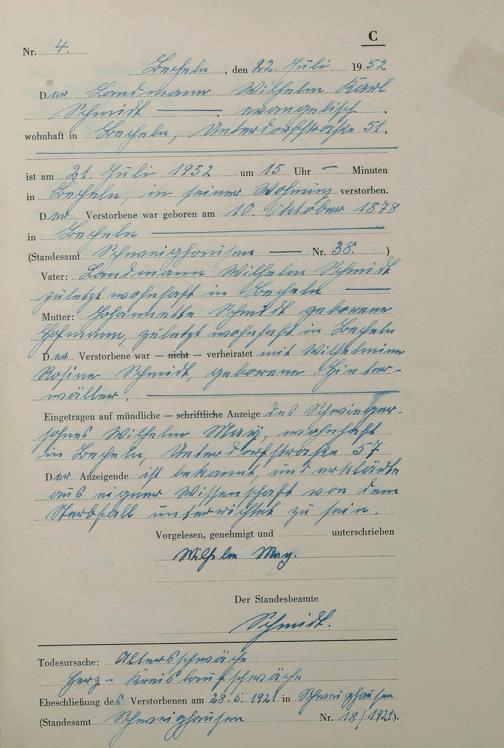 C
Nr. 4.
Becheln, den 22. Juli 1952
Der Landmann Wilhelm Karl
Schmidt — evangelisch
wohnhaft in Becheln, Unterdorfstraße 57.
ist am 21. Juli 1952 um 15 Uhr — Minuten
in Becheln, in seiner Wohnung verstorben.
Der Verstorbene war geboren am 10. Oktober 1878
in Becheln
(Standesamt Schweighausen — Nr. 38. )
Vater: Landmann Wilhelm Schmidt
zuletzt wohnhaft in Becheln
Mutter: Johannette Schmidt geborene
Hofmann, zuletzt wohnhaft in Becheln
Der Verstorbene war — nicht — verheiratet mit Wilhelmine
Rosine Schmidt, geborene Hinter-
wäller.
Eingetragen auf mündliche — schriftliche Anzeige des Schwieger-
sohnes Wilhelm May, wohnhaft
in Becheln, Unterdorfstraße 57
Der Anzeigende ist bekannt, und erklärte
aus eigner Wissenschaft von dem
Sterbfall unterrichtet zu sein.
Vorgelesen, genehmigt und unterschrieben
Wilhelm May.
Der Standesbeamte
Schmidt.
Todesursache: Altersschwäche
Herz-Kreislaufschwäche
Eheschließung des Verstorbenen am 28.5.1921 in Schweighausen
(Standesamt Schweighausen Nr. 18/1921).